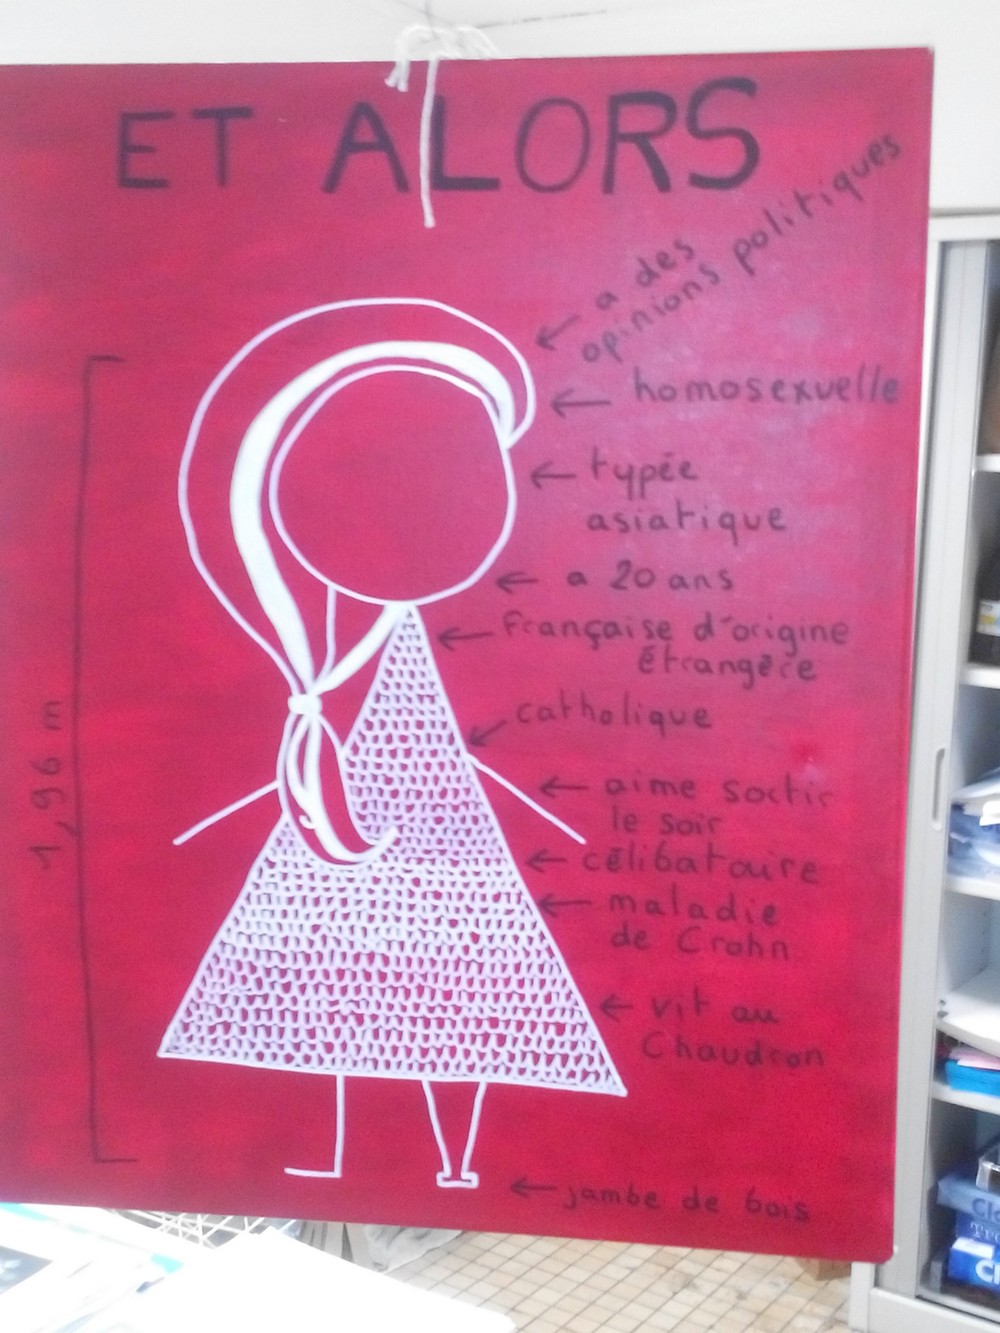 ET ALORS
a des
opinions politiques
homosexuelle
typée
asiatique
a 20 ans
française d'origine
étrangère
catholique
aime sortir
le soir
célibataire
maladie
de Crohn
vit au
Chaudron
jambe de bois
1,96 m